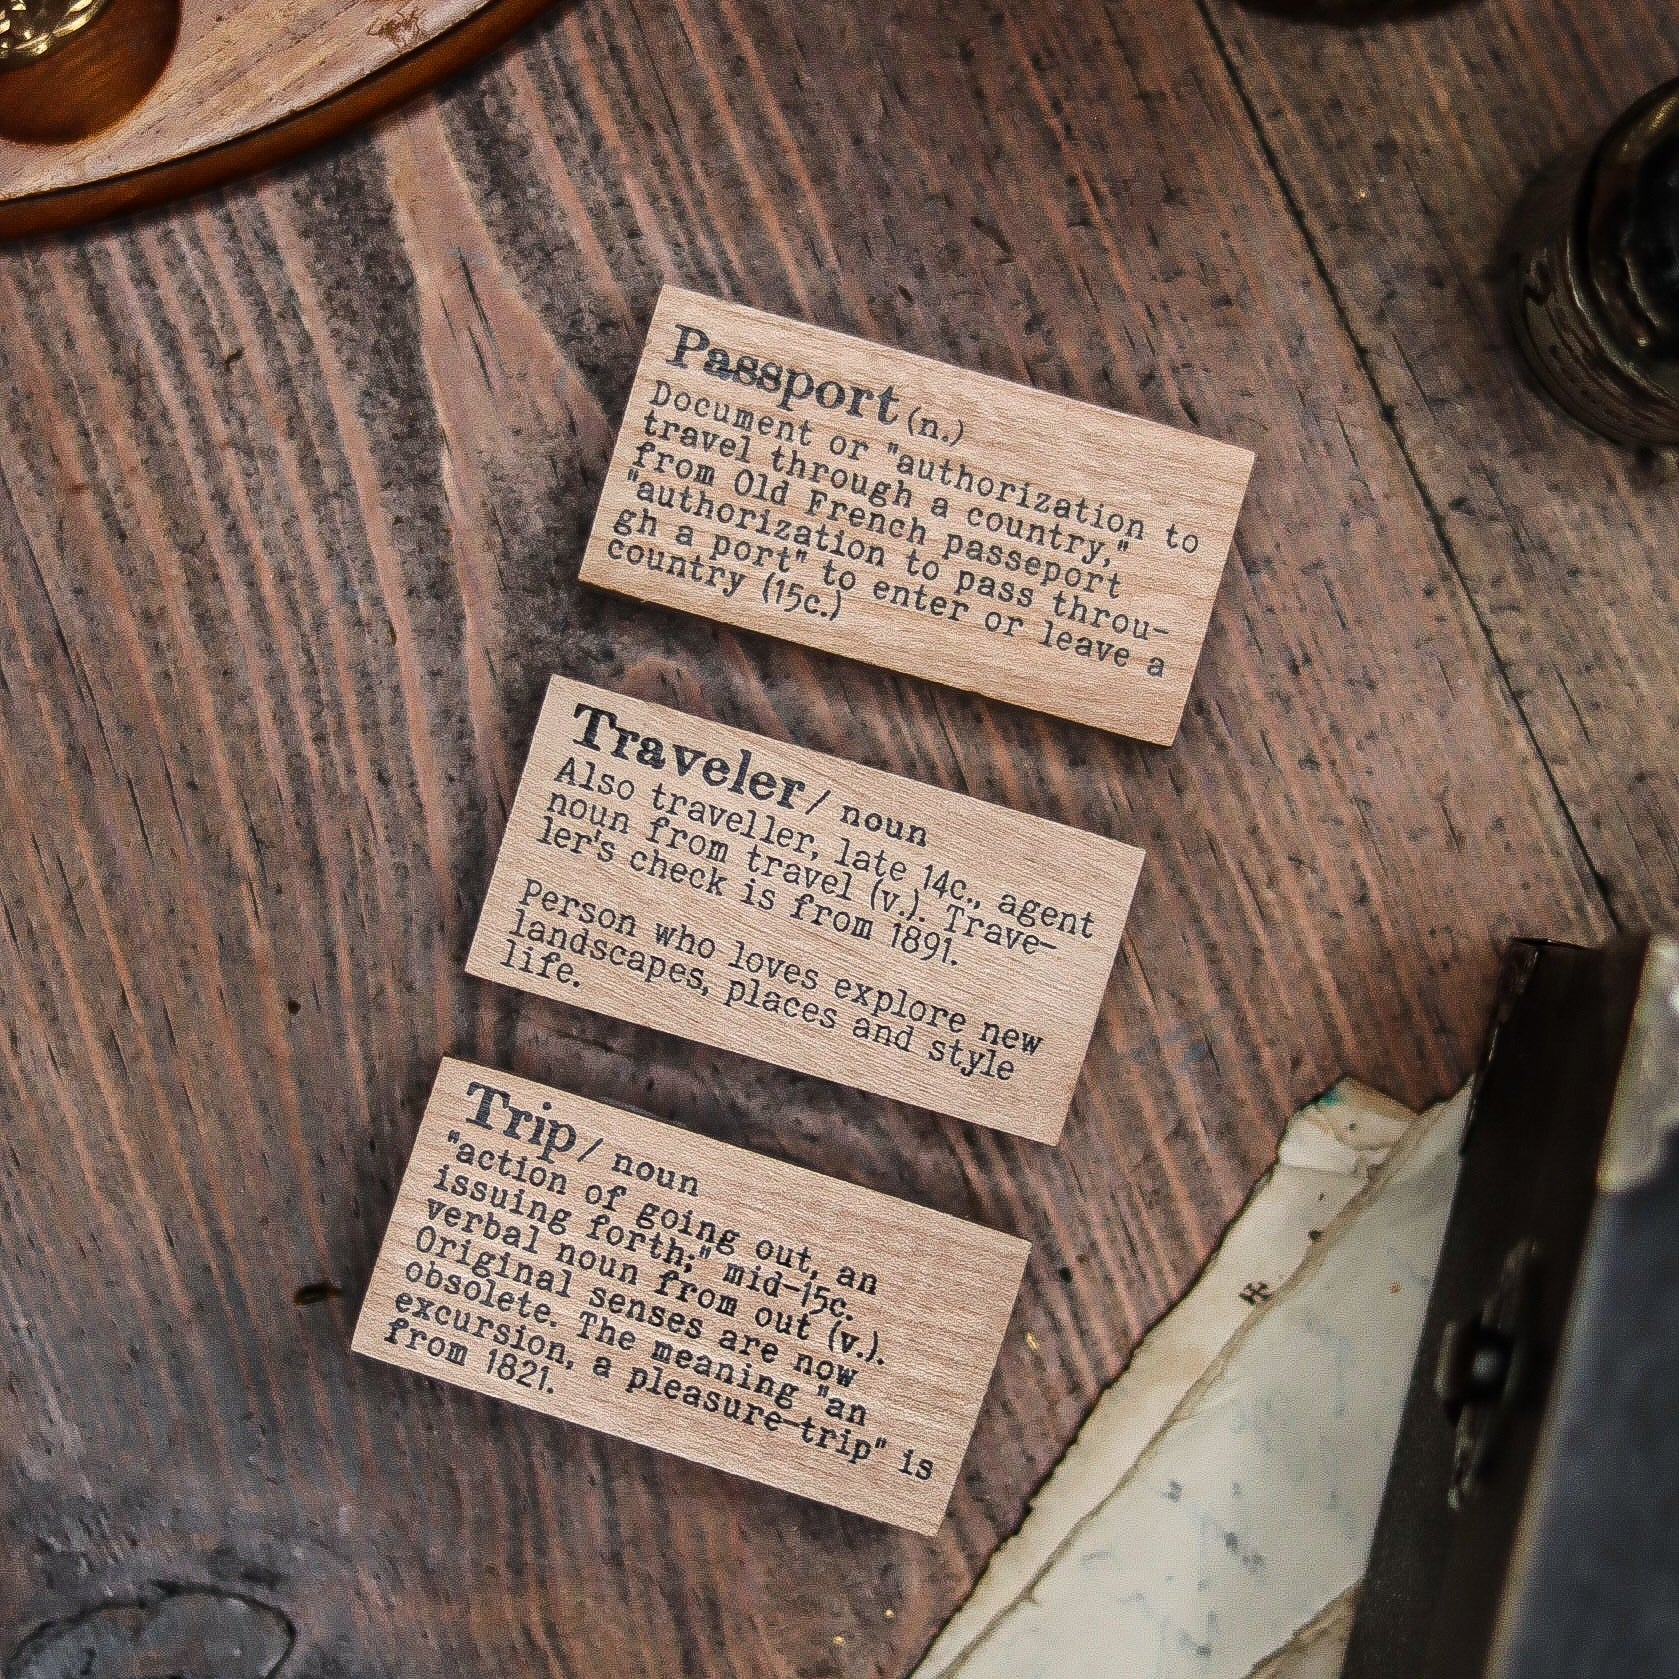 Passport (n.)
Document or "authorization to
travel through a country,"
from Old French passeport
"authorization to pass throu-
gh a port" to enter or leave a
country (15c.)
Traveler / noun
Also traveller, late 14c., agent
noun from travel (v.). Trave-
ler's check is from 1891.
Person who loves explore new
landscapes, places and style
life.
Trip / noun
"action of going out, an
issuing forth;" mid-15c.
verbal noun from out (v.).
Original senses are now
obsolete. The meaning "an
excursion, a pleasure-trip" is
from 1821.